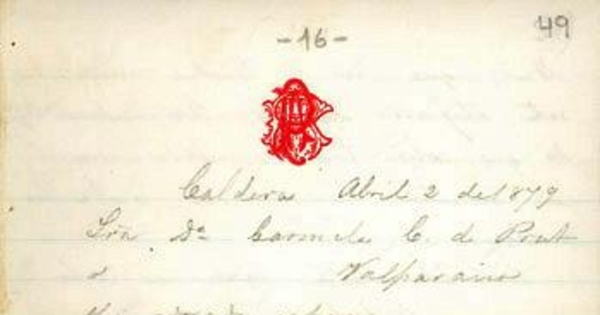 -16-
49
Caldera Abril 2 de 1879
Sra Da Carmela C. de Prat
Valparaiso